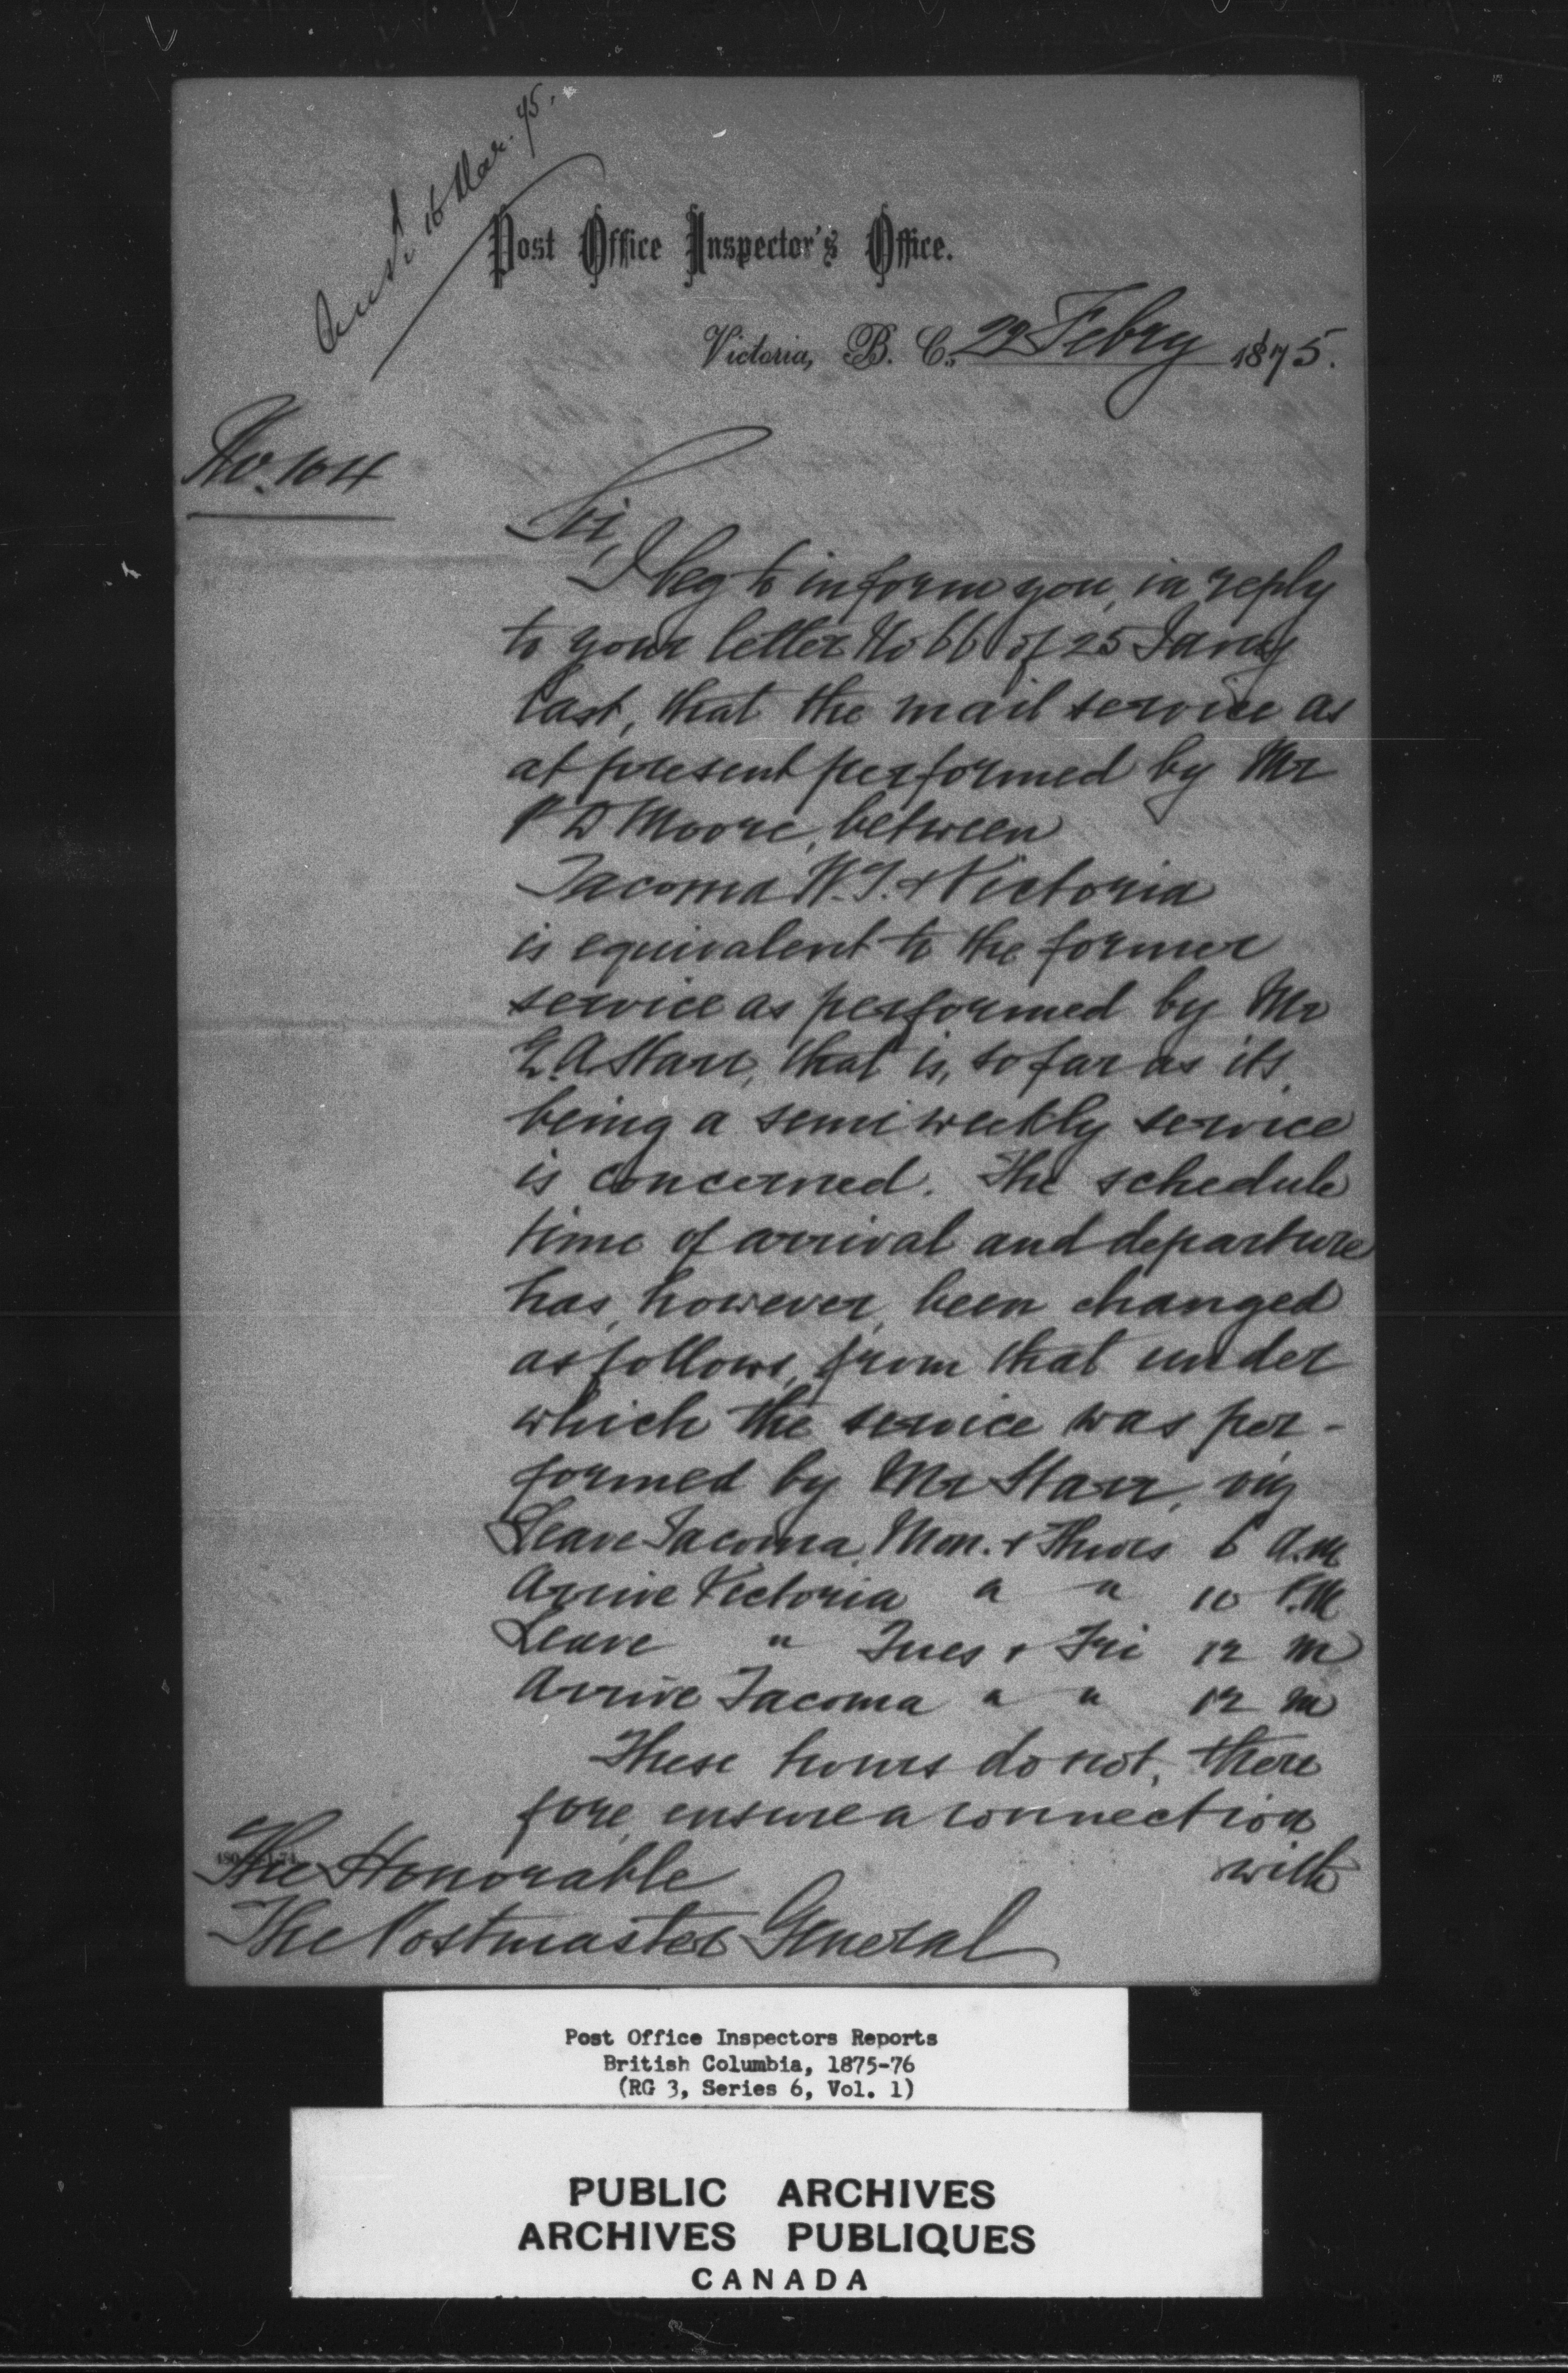 Ansd. 16 Mar. 75.
Post Office Inspector's Office.
Victoria, B. C., 22 Febry 1875.
No. 104
Sir,
I beg to inform you, in reply
to your letter No 66 of 25 Jany
last, that the mail service as
at present performed by Mr
P D Moore, between
Tacoma W.T. & Victoria
is equivalent to the former
service as performed by Mr
E. A Starr, that is, so far as its
being a semi weekly service
is concerned. The schedule
time of arrival and departure
has, however, been changed
as follows, from that under
which the service was per-
formed by Mr Starr, viz
Leave Tacoma, Mon. & Thurs 6 A.M
Arrive Victoria " " 10 P.M
Leave " Tues & Fri 12 M
Arrive Tacoma " " 12 M
These hours do not, there
fore, ensure a connection
with
The Honorable
The Postmaster General
Post Office Inspectors Reports
British Columbia, 1875-76
(RG 3, Series 6, Vol. 1)
PUBLIC ARCHIVES
ARCHIVES PUBLIQUES
CANADA